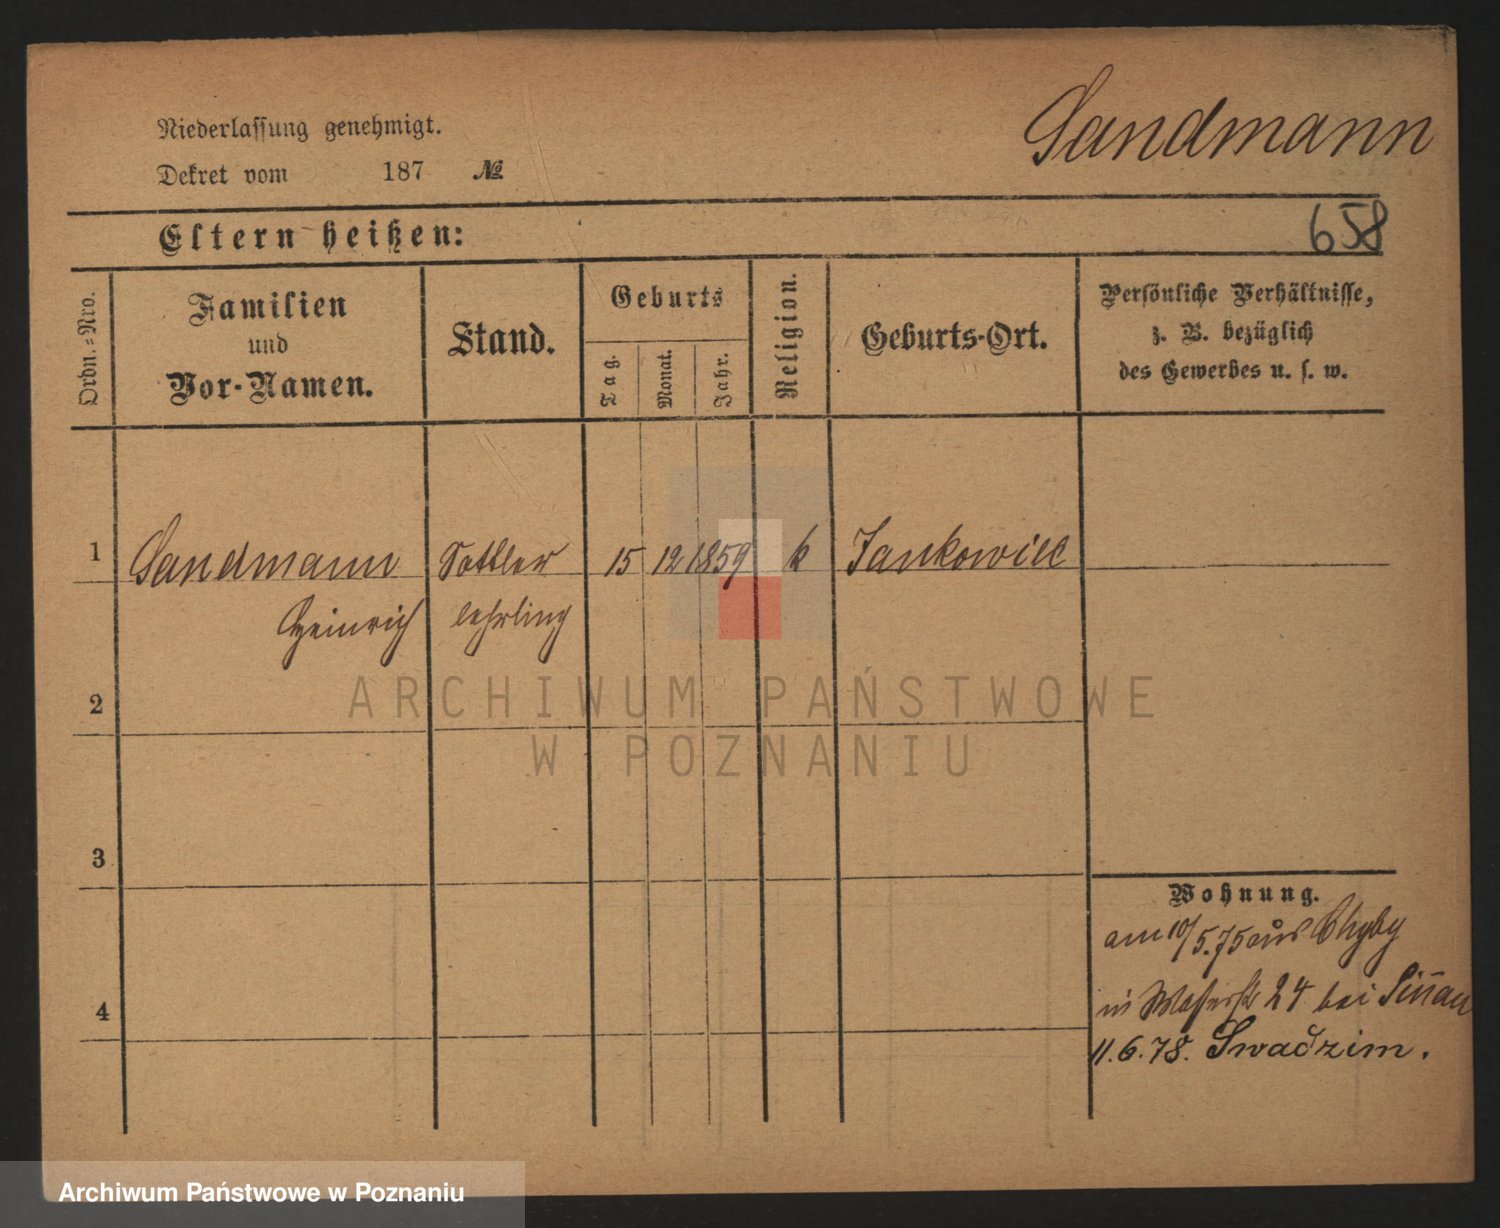 Sandmann
Niederlassung genehmigt.
Dekret vom 187 №
Eltern heißen:
658
Ordn.=Nro.
Familien
und
Vor-Namen.
Stand.
Geburts
Tag.
Monat.
Jahr.
Religion.
Geburts-Ort.
Persönliche Verhältnisse,
z. B. bezüglich
des Gewerbes u. s. w.
1 Sandmann Sattler 15 12 1859 k Jankowice
Heinrich lehrling
2
3
4
Wohnung.
am 10/5.75 aus Chyby
in Wasserstr 24 bei
11.6.78. Swadzim.
ARCHIWUM PAŃSTWOWE
W POZNANIU
Archiwum Państwowe w Poznaniu